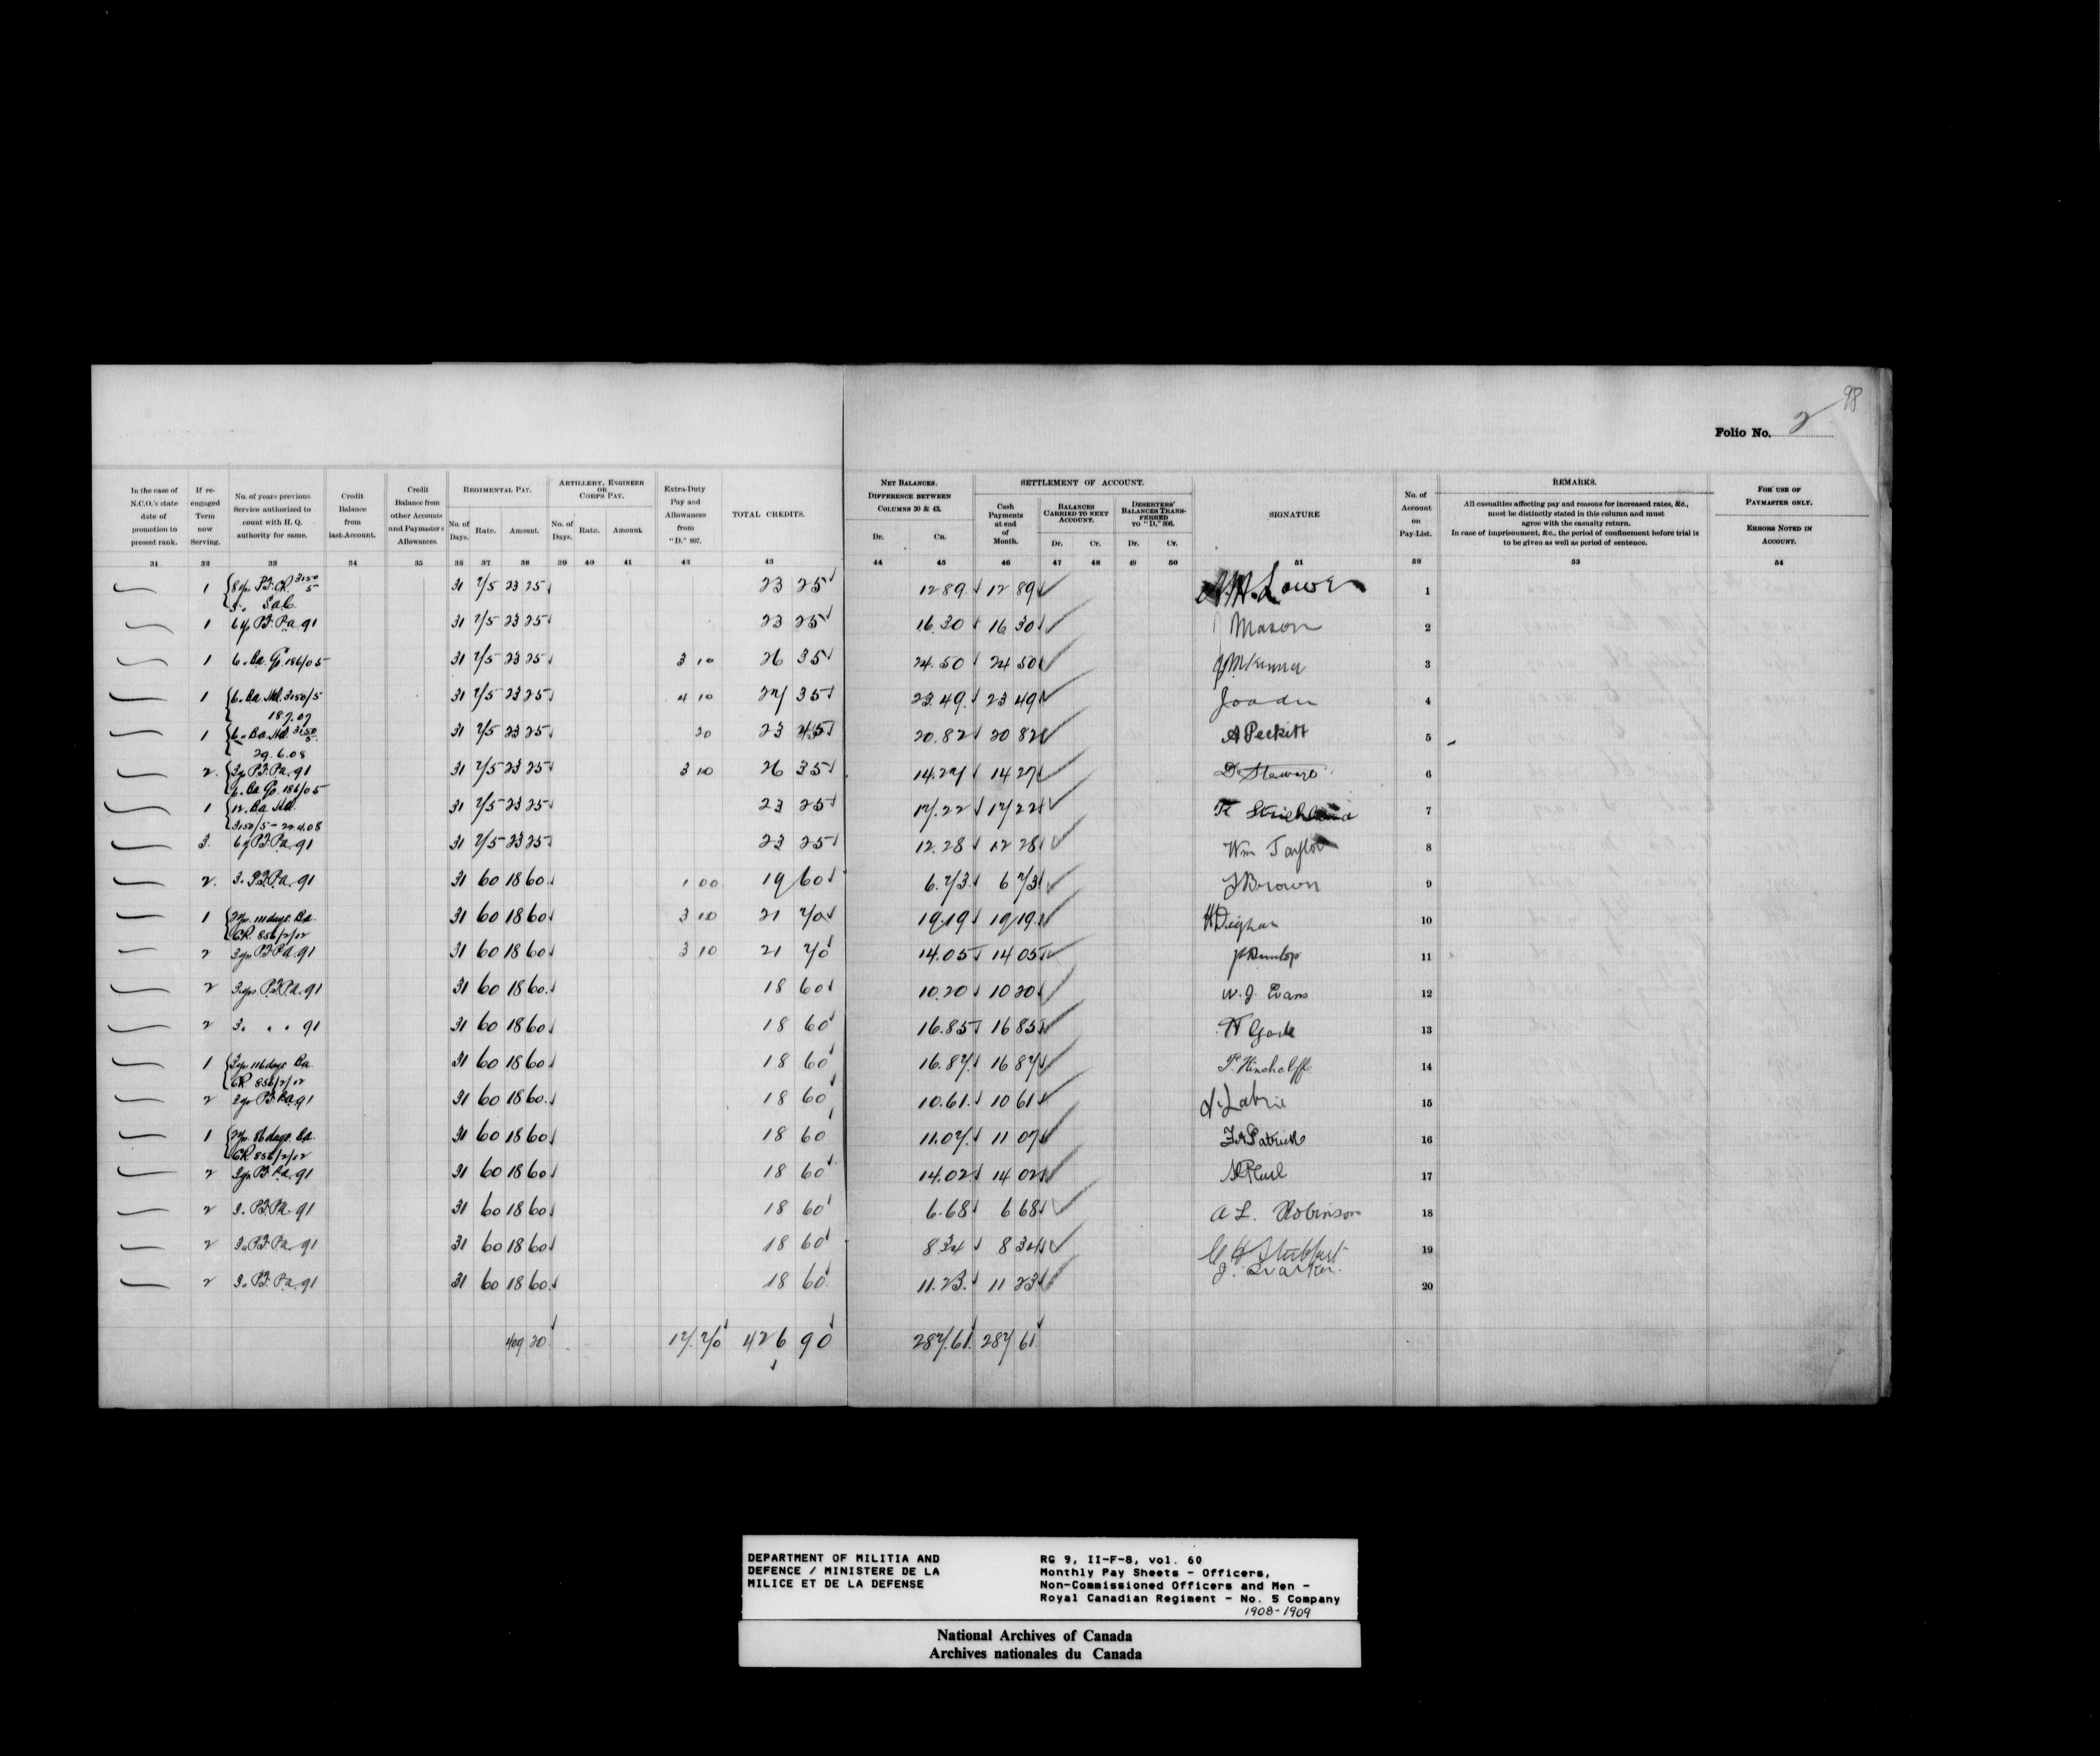 98
Folio No. 2
In the case of N.C.O.'s state date of promotion to present rank.
If re-engaged Term now Serving.
No. of years previous Service authorized to count with H. Q. authority for same.
Credit Balance from last Account.
Credit Balance from other Accounts and Paymaster's Allowances.
REGIMENTAL PAY.
No. of Days. Rate. Amount.
ARTILLERY, ENGINEER OR CORPS PAY.
No. of Days. Rate. Amount.
Extra-Duty Pay and Allowances from "D." 807.
TOTAL CREDITS.
NET BALANCES. DIFFERENCE BETWEEN COLUMNS 30 & 43.
Dr. Cr.
SETTLEMENT OF ACCOUNT.
Cash Payments at end of Month.
BALANCES CARRIED TO NEXT ACCOUNT.
Dr. Cr.
DESERTERS' BALANCES TRANSFERRED TO "D." 806.
Dr. Cr.
SIGNATURE
No. of Account on Pay-List.
REMARKS.
All casualties affecting pay and reasons for increased rates, &c., must be distinctly stated in this column and must agree with the casualty return.
In case of imprisonment, &c., the period of confinement before trial is to be given as well as period of sentence.
FOR USE OF PAYMASTER ONLY.
ERRORS NOTED IN ACCOUNT.
31 32 33 34 35 36 37 38 39 40 41 42 43 44 45 46 47 48 49 50 51 52 53 54
1 31 75 23 25 23 25 12 89 12 89 Lower 1
1 31 75 23 25 23 25 16.30 16 30 Mason 2
1 6 186/05 31 75 23 25 3 10 26 35 24.50 24 50 J McKenna 3
1 6 3150/5 31 75 23 25 4 10 27 35 23.49 23 49 4
18.7.07
1 31 75 23 25 20 23 45 20.82 20 82 A Peckitt 5
29.6.08
2. 31 75 23 25 3 10 26 35 14.27 14 27 D Steward 6
186/05
1 31 75 23 25 23 25 17.22 17 22 Strickland 7
3150/5 - 22.4.08
3. 31 75 23 25 23 25 12.28 12 28 Wm Taylor 8
2. 31 60 18 60 1 00 19 60 6.73 6 73 J Brown 9
1 31 60 18 60 3 10 21 70 19.19 19 19 H Deighan 10
856/2/02
2 31 60 18 60 3 10 21 70 14.05 14 05 Dunlop 11
2 31 60 18 60 18 60 10.20 10 20 W. J. Evans 12
2 3. " " 91 31 60 18 60 18 60 16.85 16 85 13
1 31 60 18 60 18 60 16.87 16 87 Hinchcliffe 14
856/2/02
2 31 60 18 60 18 60 10.61 10 61 Labrie 15
1 31 60 18 60 18 60 11.07 11 07 Patrick 16
856/2/02
2 31 60 18 60 18 60 14.02 14 02 17
2 31 60 18 60 18 60 6.68 6 68 A L. Robinson 18
2 31 60 18 60 18 60 8 34 8 34 19
2 31 60 18 60 18 60 11.23 11 23 20
409 20 17.70 426 90 287.61 287 61
DEPARTMENT OF MILITIA AND
DEFENCE / MINISTERE DE LA
MILICE ET DE LA DEFENSE
RG 9, II-F-8, vol. 60
Monthly Pay Sheets - Officers,
Non-Commissioned Officers and Men -
Royal Canadian Regiment - No. 5 Company
1908-1909
National Archives of Canada
Archives nationales du Canada